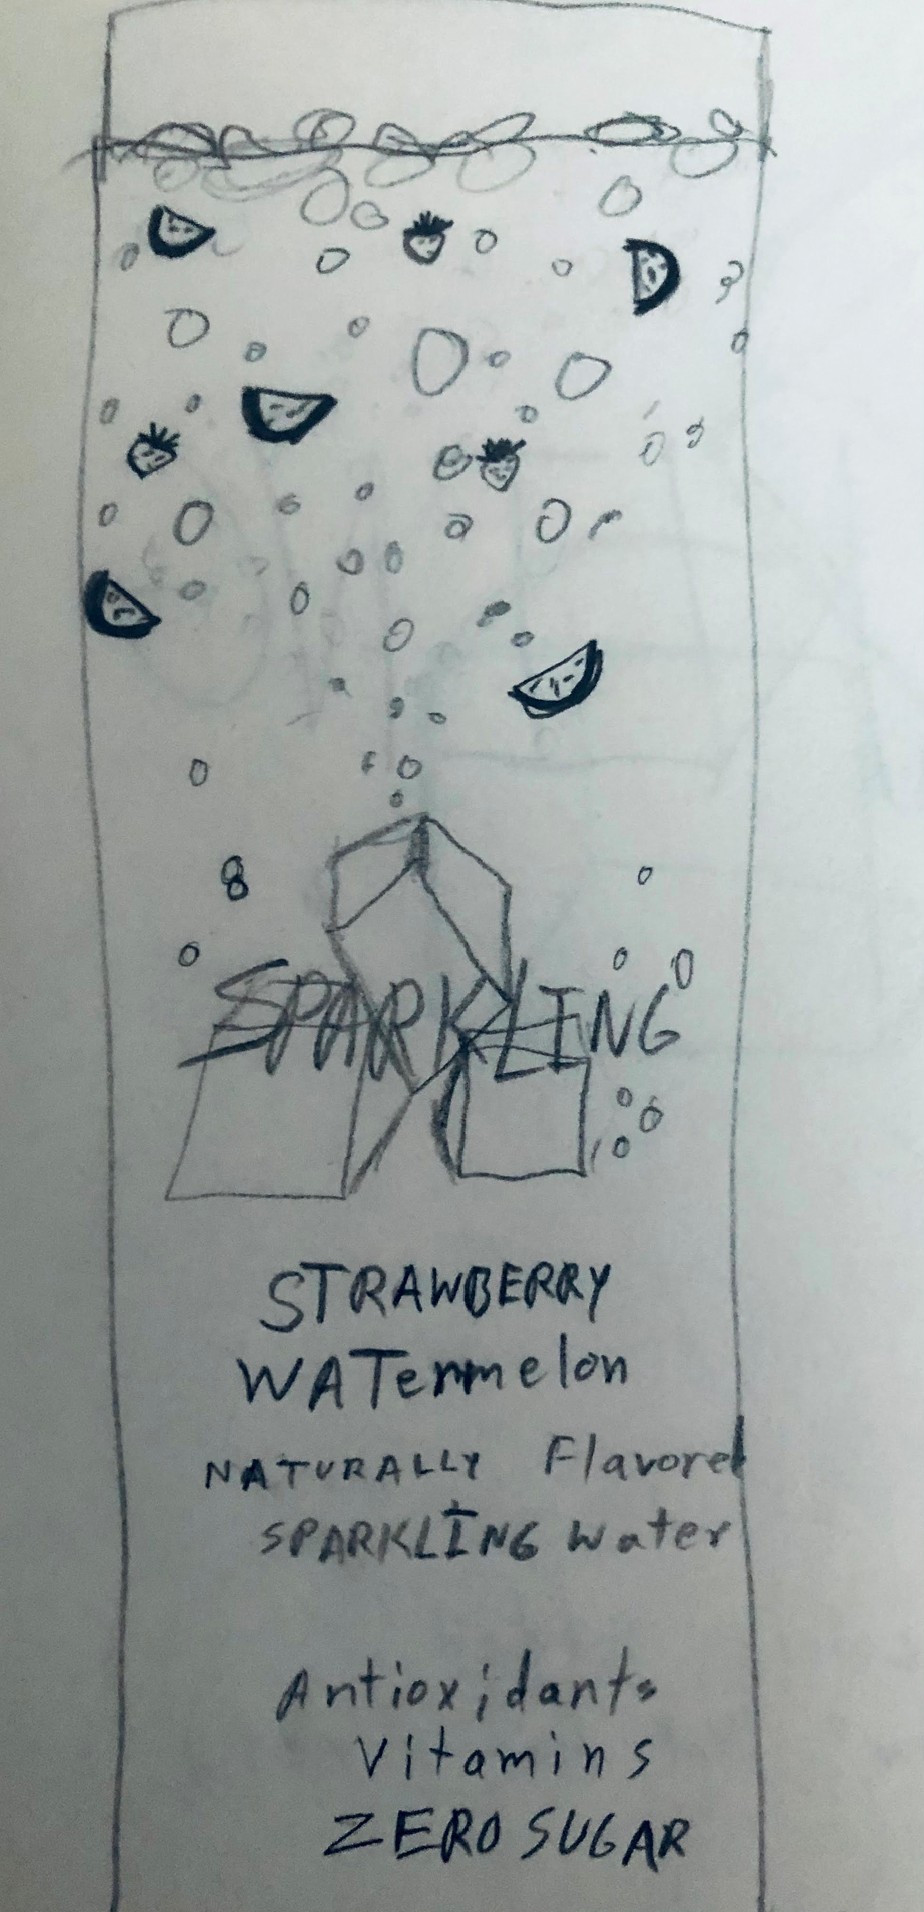 SPARKLING
STRAWBERRY
WATermelon
NATURALLY Flavored
SPARKLING Water
Antioxidants
Vitamins
ZERO SUGAR